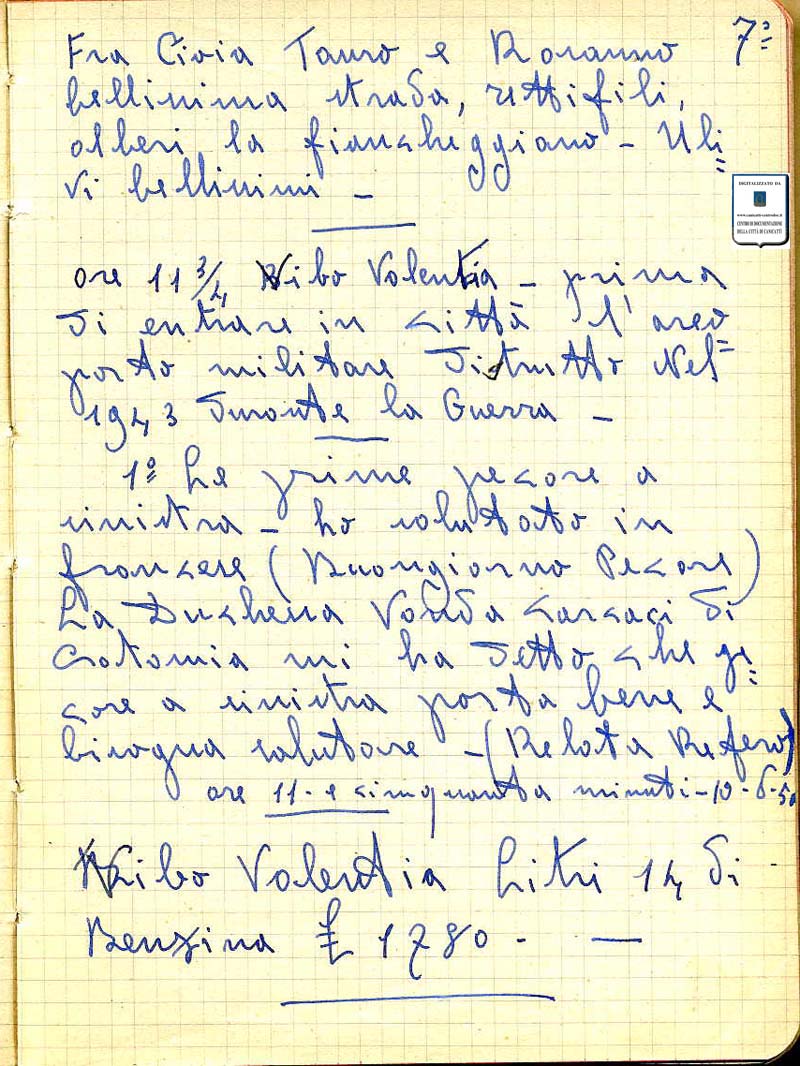 7º
Fra Gioia Tauro e Rosarno
bellissima strada, rettifili,
alberi la fiancheggiano - Uli
vi bellissimi -
DIGITALIZZATO DA
www.canicatti-centrodoc.it
CENTRO DI DOCUMENTAZIONE
DELLA CITTÀ DI CANICATTÌ
ore 11 3/4 Vibo Valentia - prima
di entrare in città l'areo
porto militare distrutto Nel
1943 durante la Guerra -
1º Le prime pecore a
sinistra - ho salutato in
francese (Buongiorno Pecore)
La Duchessa Vanda Carcaci di
mi ha detto che pe
core a sinistra porta bene e
bisogna salutare - (Relata Refero)
ore 11 - e cinquanta minuti - 10-6-50
Vibo Valentia Litri 14 di
Benzina £ 1780 - —